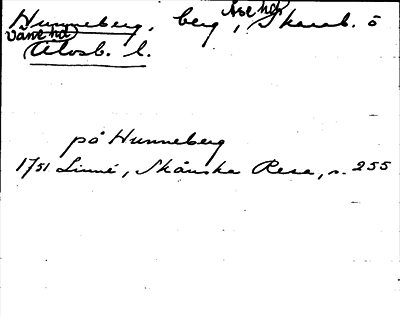 Hunneberg, berg, Åse hd Skarab. o
Väne hd Älvsb. l.
på Hunneberg
1751 Linné, Skånska Resa, s. 255